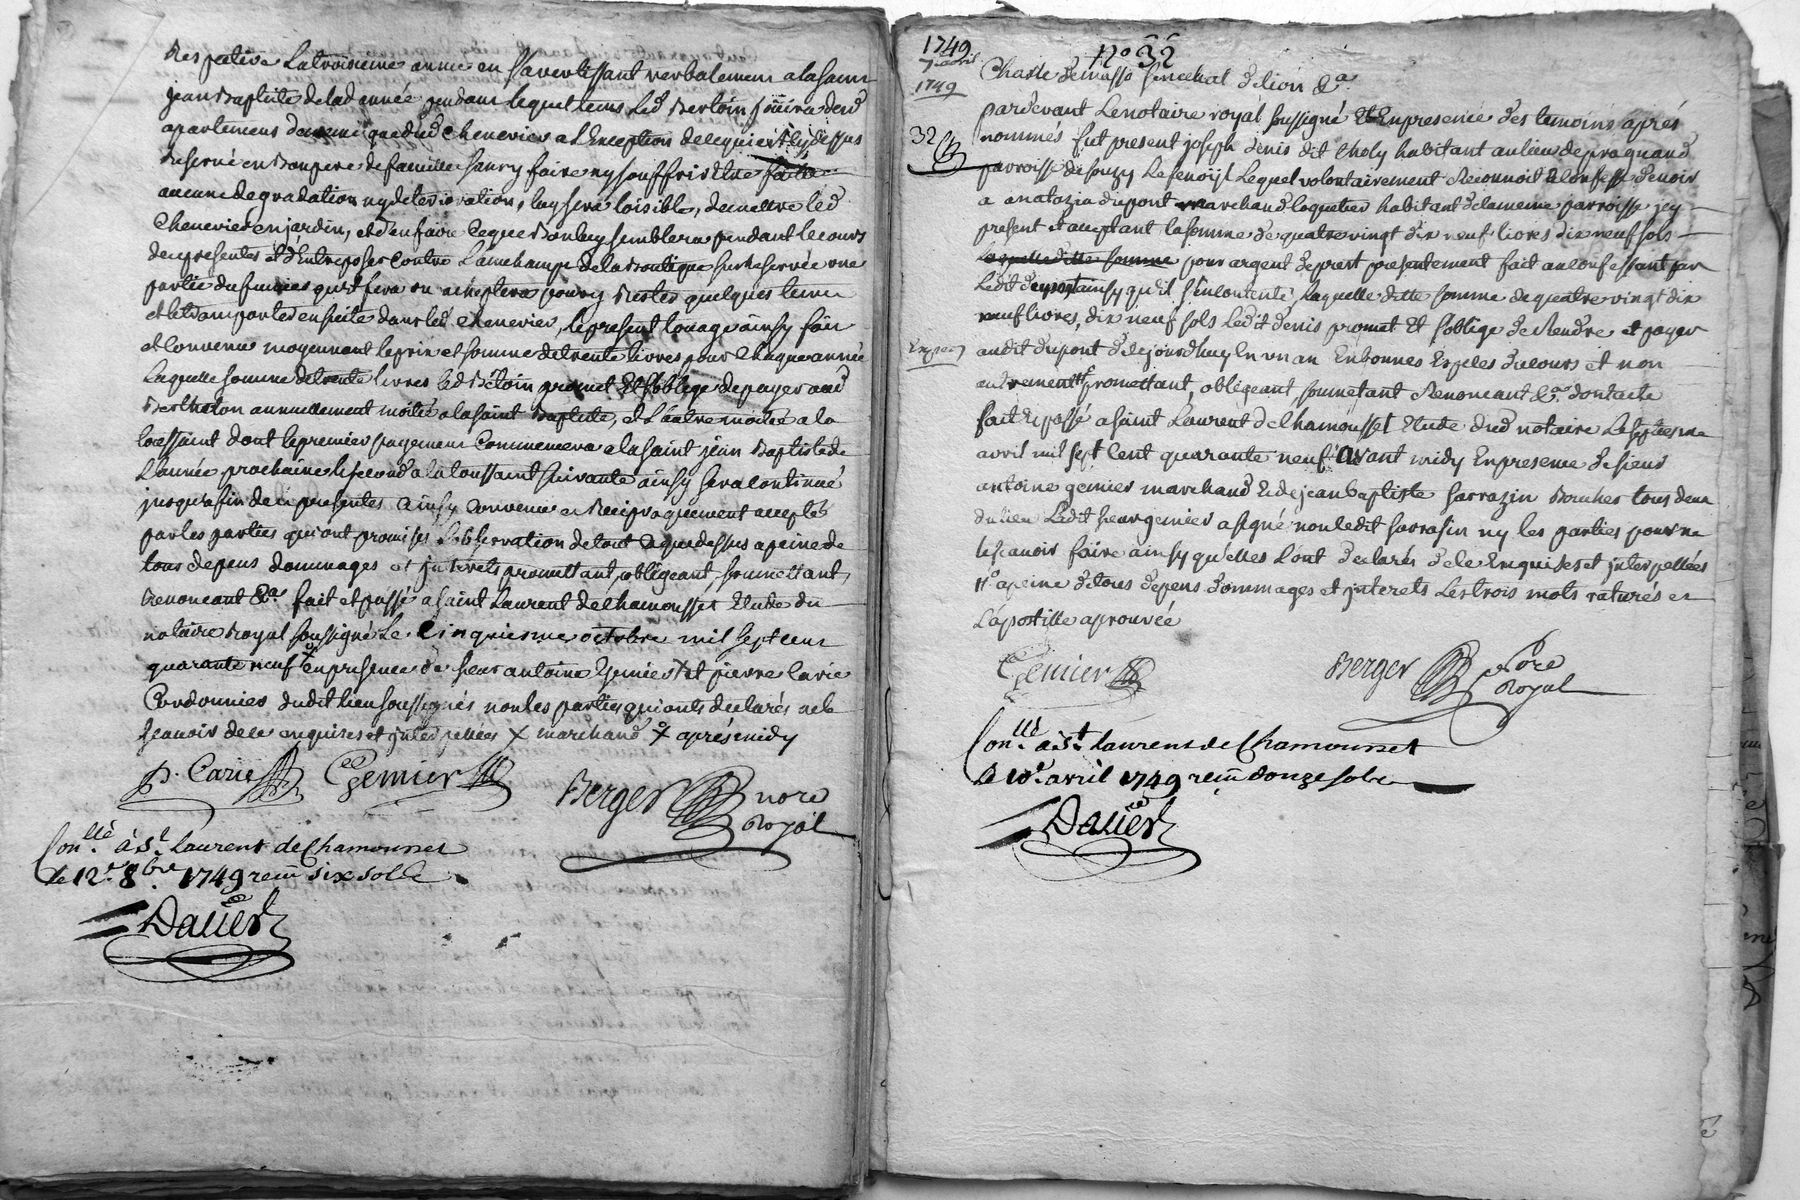 Respective La troisieme année en s'avertissant verbalement a la saint
jean Baptiste de lad année pendant lequel tems Led Bertoin jouira dud
apartement de memequedud Chenevier a l'Exception de ce qui est cy dessus
Reservé en Bon pere de famille sans y faire ny souffrir etre faite
aucune degradation ny deterioration, luy sera loisible, de mettre led
Chenevier en jardin, et d'en faire ce que Bon luy semblera pendant le cours
des presentes et d'Entreposer Contre La de la Boutique sus Reservée une
partie du fumier qu'il fera ou achetera pour y Rester quelques tems
et le transporter ensuite dans led chenevier, le present louage ainsy fait
et convenu moyennant le prix et somme de trente livres pour Chaque année
Laquelle somme de trente livres led Bertoin promet Et s'oblige de payer aud
Berthelon annuellement moitié a la saint Baptiste, et L'autre moitié a la
toussaint dont le premier payement Commencera a la saint jean Baptiste de
L'année prochaine le second a la toussaint suivante ainsy sera continué
jusqu'a fin de ces presentes ainsy convenu et Reciproquement accepté
par les parties qui ont promis L'observation de tout ce que dessus a peine de
tous depens dommages et jnterets promettant, obligeant, soumettant,
Renonceant &a. fait et passé a saint Laurent de chamousset Etude du
notaire Royal soussigné Le Cinquieme octobre mil sept cent
quarante neuf en presence de sieur antoine Gemier X et pierre Carie
Cordonnier dudit lieu soussignés non les parties qui ont declarés ne le
sçavoir de ce enquises et jnterpellées X marchand X après midy
P. Carie Gemier Berger nore
Royal
Con.llé à St. Laurent de Chamousset
le 12e 8bre 1749 reçu six sols
Dauer
1749
7 avril
1749
No 32
Charle de masso senechal de lion &a.
pardevant Le notaire royal soussigné Et En presence des temoins après
32
nommés fut present joseph denis dit Choly habitant au lieu de praquand
parroisse de souzy Lequel volontairement Reconnoit Et Confesse devoir
a anatazia dupont marchand loquetier habitant de la meme parroisse jcy
present et acceptant la somme de quatre vingt dix neuf livres dix neuf sols
Laquelle ditte somme pour argent de prest presentement fait au confessant par
Ledit dupont ainsy qu'il s'en contente, Laquelle ditte somme de quatre vingt dix
neuf livres, dix neuf sols Ledit denis promet Et s'oblige de Rendre et payer
Exped
audit dupont de ce jourd'huy En un an En bonnes Espèces de cours et non
autrement promettant, obligeant, soumettant Renonceant &a. dont acte
fait Et passé a saint Laurent de Chamousset Etude dud notaire Le septieme
avril mil sept Cent quarante neuf avant midy En presence de sieur
antoine gemier marchand Et de jean baptiste sarrazin Boucher tous deux
du lieu Ledit sieur gemier a signé non ledit sarrasin ny les parties pour ne
le sçavoir faire ainsy qu'elles l'ont declarés de ce Enquises et jnterpellées
a peine de tous depens dommages et jnterets Les trois mots raturés et
L'apostille aprouvée
Gemier Berger nore
Royal
Con.llé à St. Laurent de Chamousset
le 10e avril 1749 reçu douze sols
Dauer